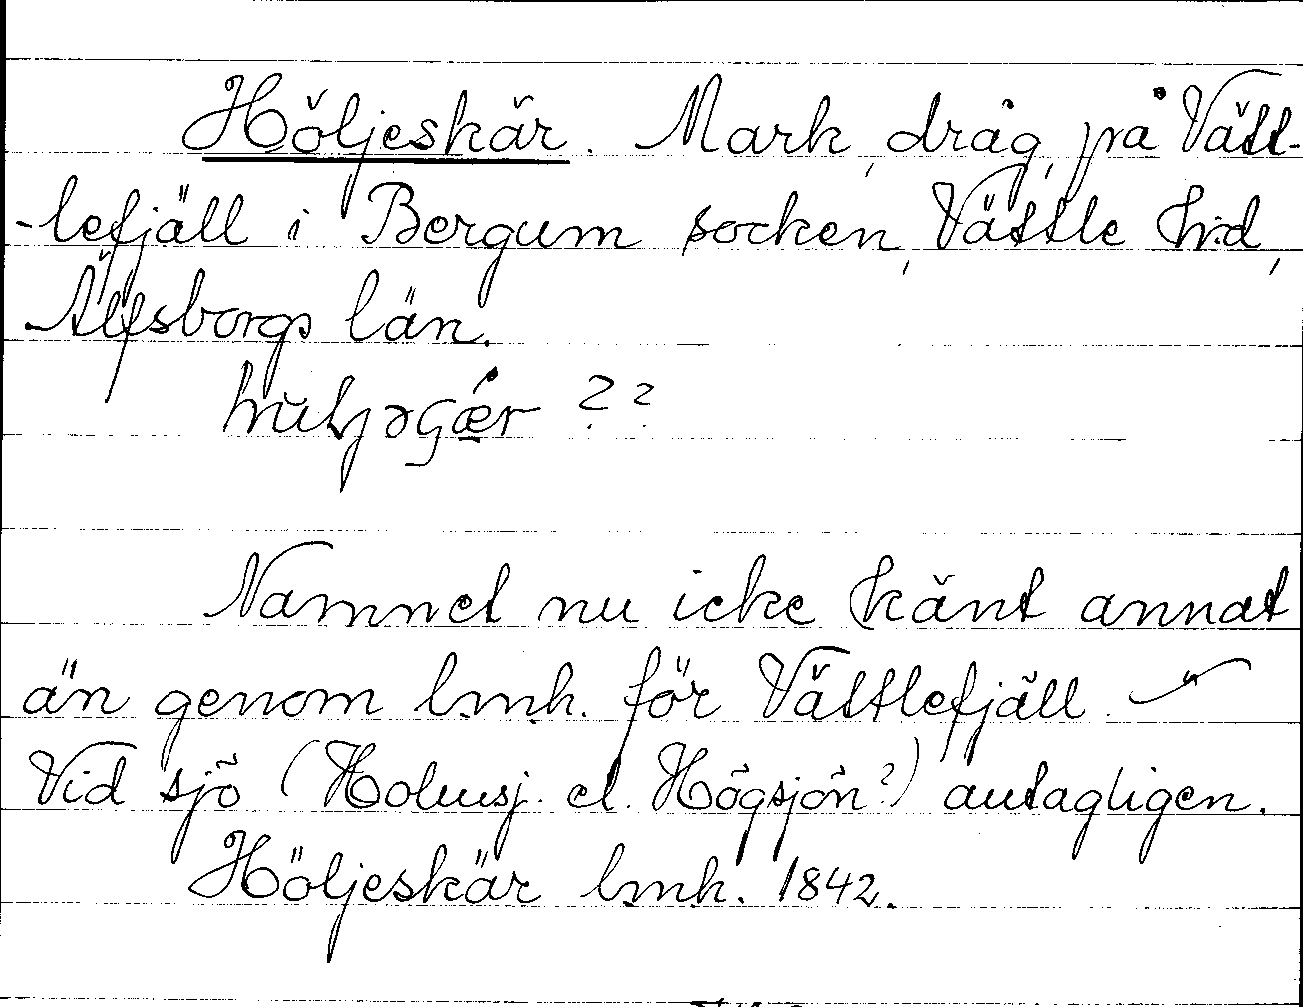 Höljeskär. Mark, dråg, på Vätt-
-lefjäll i Bergum socken, Vättle hd,
Älfsborgs län.
??
Namnet nu icke känt annat
än genom lmh. för Vättlefjäll.
Vid sjö (Holmsj. el. Högsjön?) antagligen.
Höljeskär lmh. 1842.